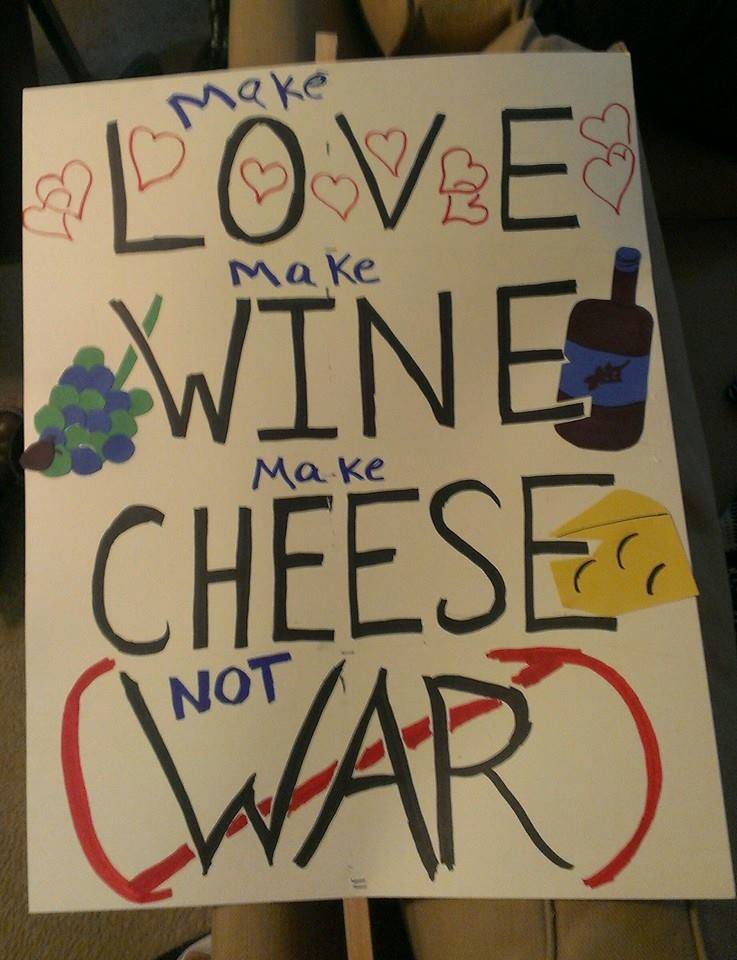 Make
LOVE
Make
WINE
Make
CHEESE
NOT
WAR